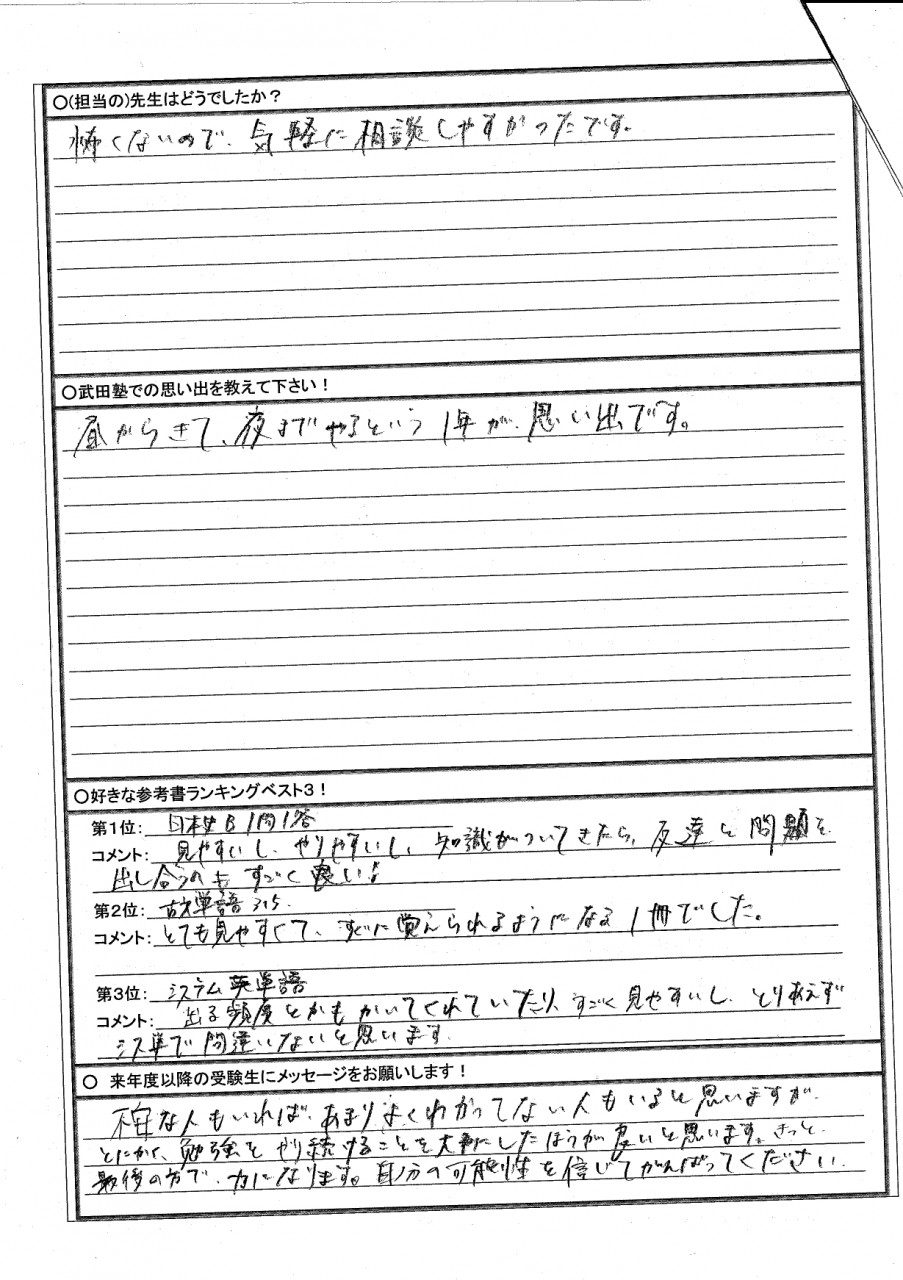 ○(担当の)先生はどうでしたか?
怖くないので、気軽に相談しやすかったです。
○武田塾での思い出を教えて下さい!
昼からきて、夜までやるという1年が、思い出です。
○好きな参考書ランキングベスト3!
第1位: 日本史B1問1答
コメント: 見やすいし、やりやすいし、知識がついてきたら、友達と問題を
出し合うのもすごく良い!
第2位: 古文単語315.
コメント: とても見やすくて、すぐに覚えられるようになる1冊でした。
第3位: システム英単語
コメント: 出る頻度とかもかいてくれていたり、すごく見やすいし、とりあえず
シス単で間違いないと思います.
○ 来年度以降の受験生にメッセージをお願いします!
な人もいれば、あまりよくわかってない人もいると思いますが、
とにかく、勉強をやり続けることを大事にしたほうが良いと思います。きっと、
最後の方で、力になります。自分の可能性を信じてがんばってください.